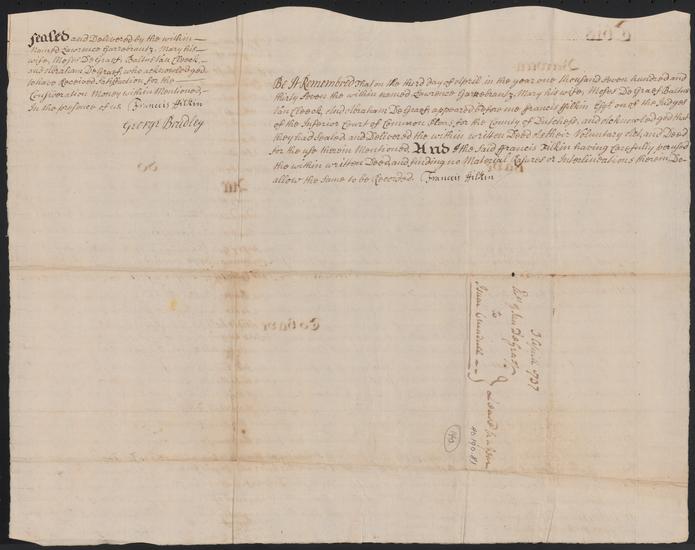 Sealed and Delivered by the within
named Lawrence Garrebrantz, Mary his
wife, Moses De Graef, Baltus Van Cleeck,
and Abraham De Graef, who acknowledged
to have Received Satisfaction for the
Consideration Money within Mentioned,
In the presence of us Francis Filkin
George Bradley
Be It Remembred That on the third day of Aprill in the year one thousand Seven hundred and
thirty Seven the within named Lawrence Garrebrantz, Mary his wife, Moses De Graef Baltus
Van Cleeck, and Abraham De Graef appeared before me Francis Filkin Esqr one of the Judges
of the Inferior Court of Common Pleas, for the County of Dutchess, and acknowledged that
they had Sealed and Delivered the within written Deed as their Voluntary Act, and Deed
for the use therein Mentioned. And I the Said Francis Filkin having carefully perused
the within written Deed and finding no Material Rasures or Interlineations therein Do
allow the Same to be Recorded. Francis Filkin
3 April 1737
to
40.190.81